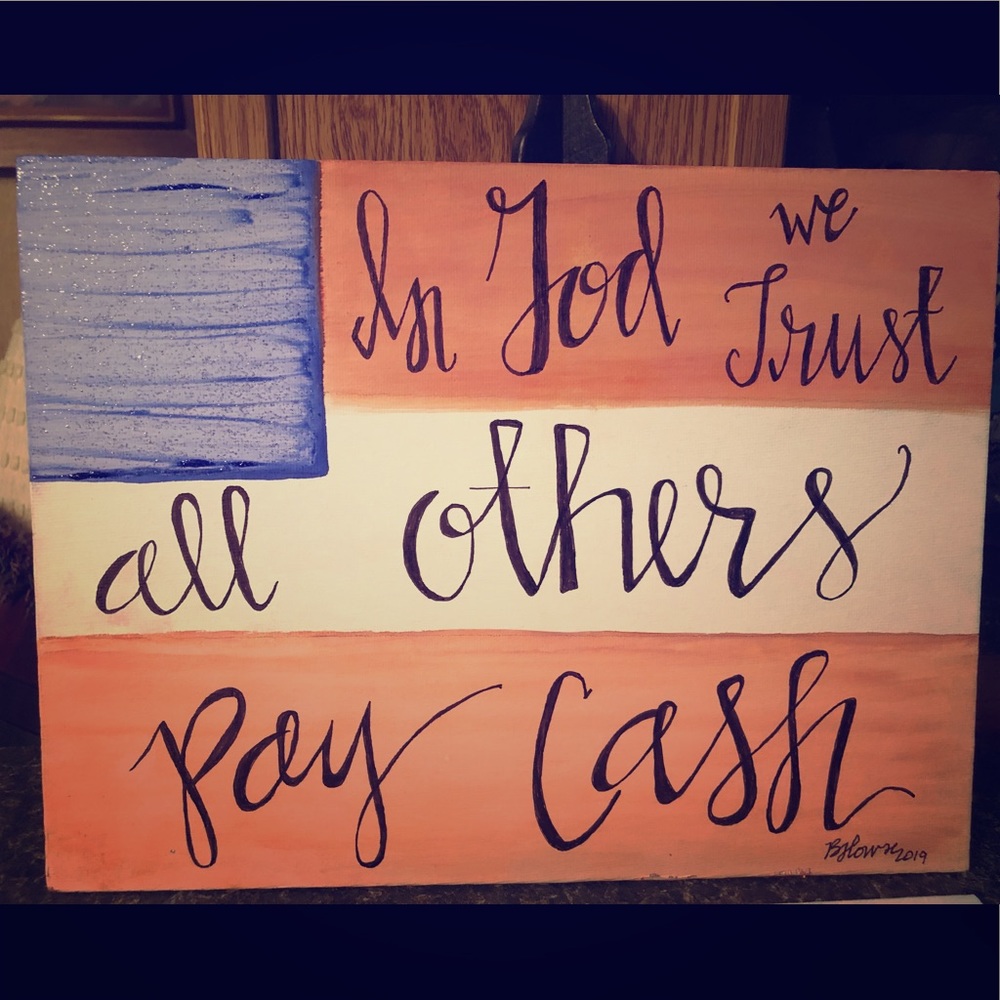 In God we
Trust
all others
pay Cash
2019